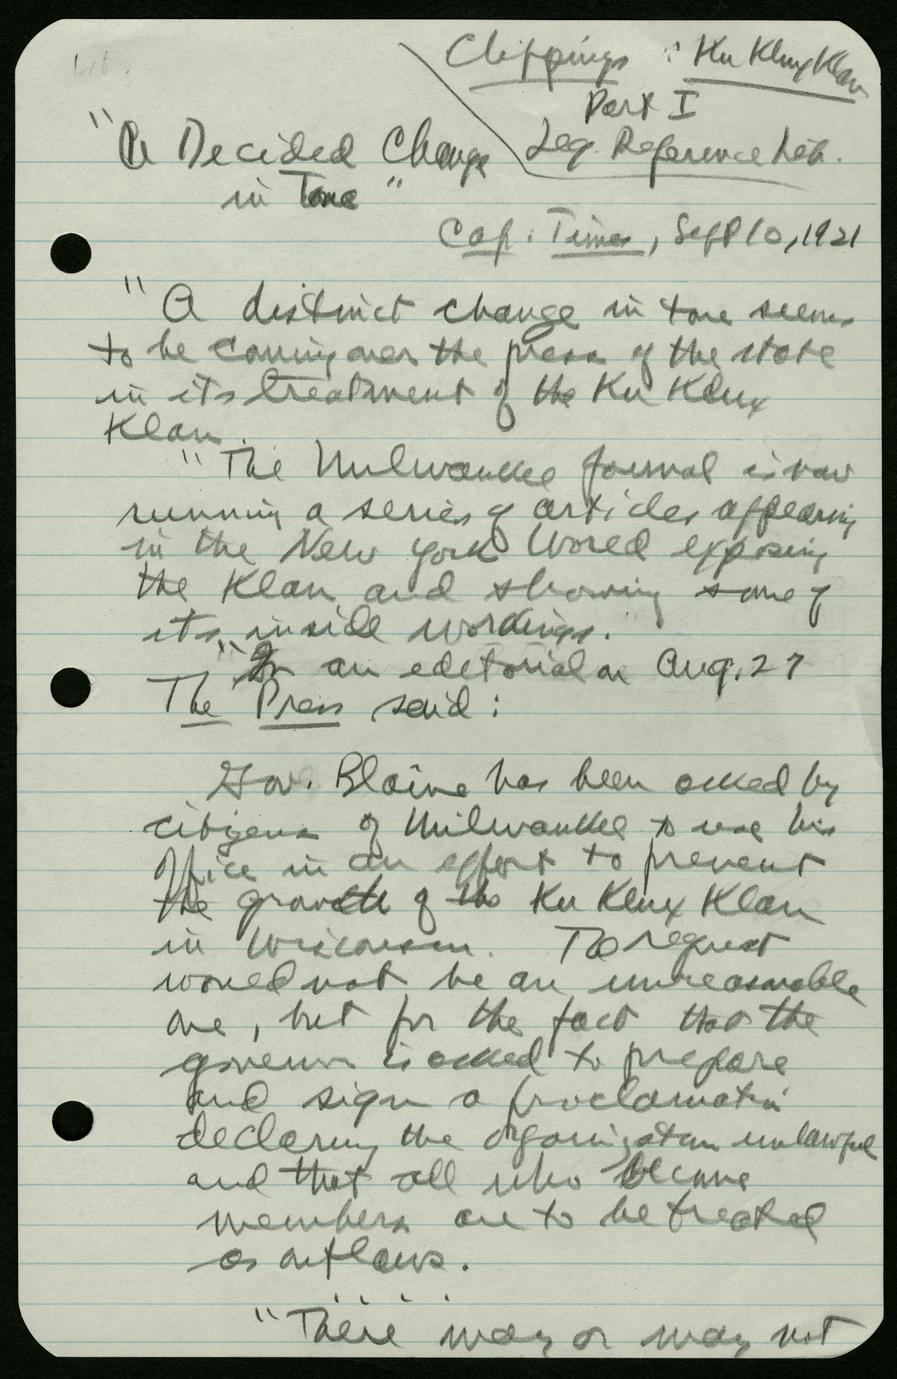 Clippings : Ku Klux Klan
Part I
Leg. Reference Lib.
"A Decided Change
in Tone"
Cap. Times, Sept 10, 1921
"A distinct change in tone seems
to be coming over the press of the state
in its treatment of the Ku Klux
Klan.
"The Milwaukee Journal is now
running a series of articles appearing
in the New York World exposing
the Klan and showing some of
its inside workings."
"In an editorial on Aug. 27
The Press said:
Gov. Blaine has been asked by
citizens of Milwaukee to use his
office in an effort to prevent
the growth of the Ku Klux Klan
in Wisconsin. The request
would not be an unreasonable
one, but for the fact that the
governor is asked to prepare
and sign a proclamation
declaring the organization unlawful
and that all who become
members are to be treated
as outlaws.
. . . .
"There may or may not